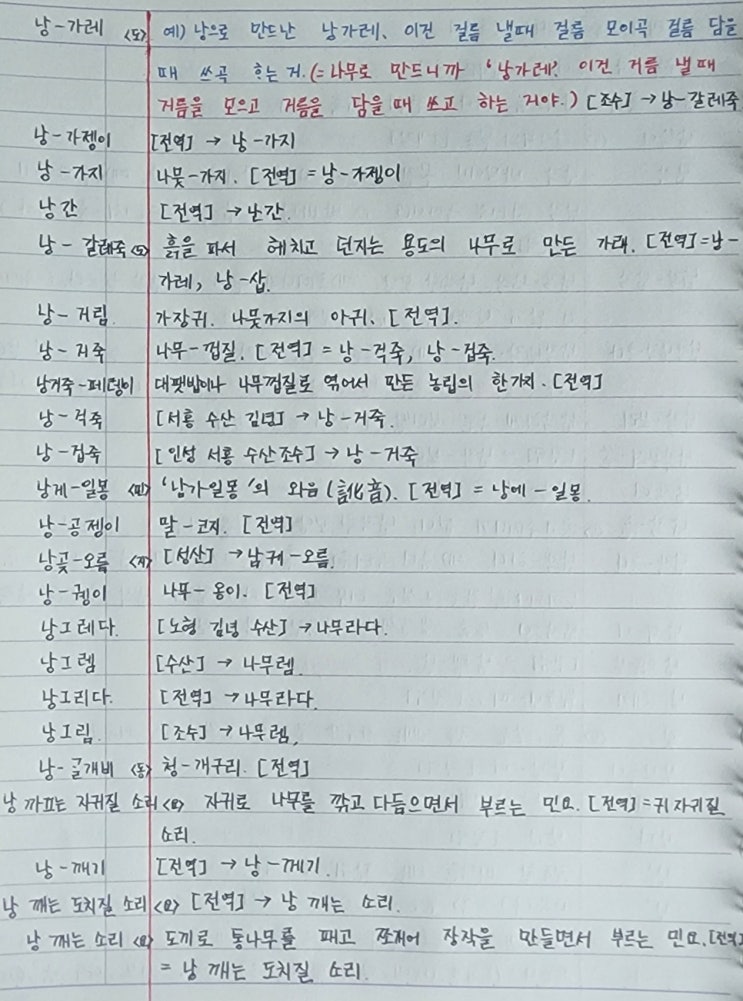 낭-가레 <도> 예) 낭으로 만드난 낭가레、이건 걸름 낼때 걸름 모이곡 걸름 담을
때 쓰곡 하는 거. (=나무로 만드니까 '낭가레'. 이건 거름 낼 때
거름을 모으고 거름을 담을 때 쓰고 하는 거야.) [조수] → 낭-갈레죽
낭-가젱이 [전역] → 낭-가지
낭-가지 나뭇-가지. [전역] = 낭-가젱이
낭간 [전역] → 난간.
낭-갈레죽 <도> 흙을 파서 헤치고 던지는 용도의 나무로 만든 가래. [전역] = 낭-
가레, 낭-삽.
낭-거림. 가장귀. 나뭇가지의 아귀. [전역].
낭-거죽 나무-껍질. [전역] = 낭-걱죽, 낭-겁죽.
낭거죽-페덩이 대팻밥이나 나무껍질로 엮어서 만든 농립의 한가지. [전역]
낭-걱죽 [서홍 수산 김녕] → 낭-거죽.
낭-겁죽 [인성 서홍 수산 조수] → 낭-거죽
낭게-일몽 <민> '남가일몽'의 와음(訛音). [전역] = 낭에-일몽.
낭-공젱이 말-코지. [전역]
낭곶-오름 <지> [성산] → 남귀-오름.
낭-궹이 나무-옹이. [전역]
낭그레다. [노형 김녕 수산] → 나무라다.
낭그렘 [수산] → 나무렘.
낭그리다. [전역] → 나무라다.
낭그림. [조수] → 나무렘.
낭-골개비 <동> 청-개구리. [전역]
낭 까끄는 자귀질 소리 <요> 자귀로 나무를 깎고 다듬으면서 부르는 민요. [전역] = 귀자귀질
소리.
낭-깨기 [전역] → 낭-께기.
낭 깨는 도치질 소리 <요> [전역] → 낭 깨는 소리.
낭 깨는 소리 <요> 도끼로 통나무를 패고 쪼개어 장작을 만들면서 부르는 민요. [전역]
= 낭 깨는 도치질 소리.